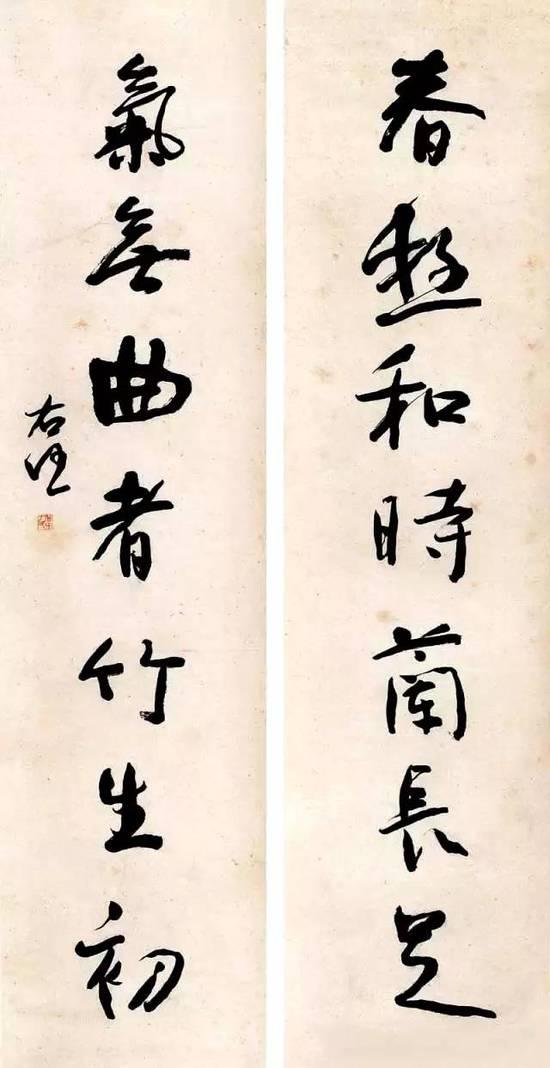 春和時蘭長足
氣無曲者竹生初
右任